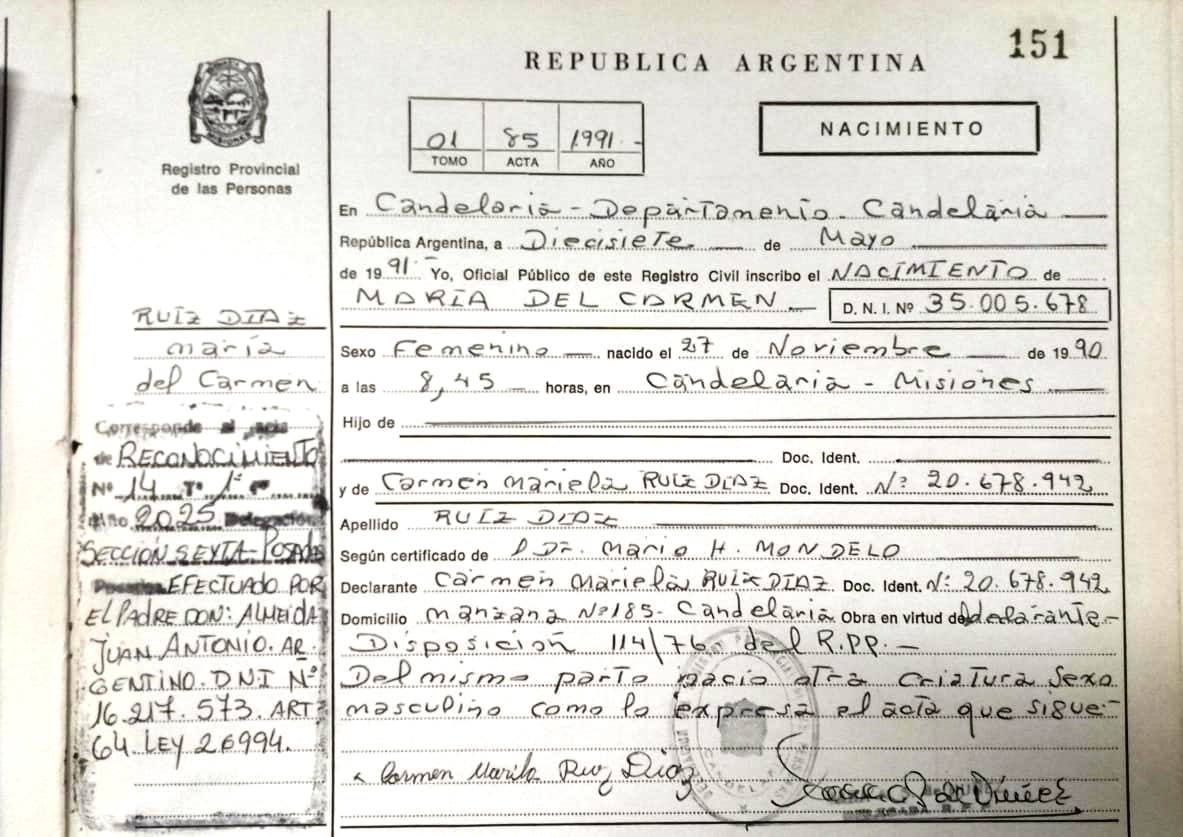 151
REPUBLICA ARGENTINA
NACIMIENTO
01 85 1991.-
TOMO ACTA AÑO
Registro Provincial
de las Personas
En Candelaria - Departamento. Candelaria
República Argentina, a Diecisiete de Mayo
de 1991 Yo, Oficial Público de este Registro Civil inscribo el NACIMIENTO de
MARÍA DEL CARMEN D. N. I. Nº 35.005.678
Sexo Femenino nacido el 27 de Noviembre de 1990
a las 8,45 horas, en Candelaria - Misiones
Hijo de
Doc. Ident.
y de Carmen Mariela RUIZ DIAZ Doc. Ident. Nº 20.678.942
Apellido RUIZ DIAZ
Según certificado de Dr. Mario H. MONDELO
Declarante Carmen Mariela RUIZ DIAZ Doc. Ident. Nº 20.678.942
Domicilio manzana Nº185- Candelaria Obra en virtud de declarante-
Disposición 114/76 del R.PP.-
Del mismo parto nacio otra criatura Sexo
masculino como lo expresa el acta que sigue-
Carmen Mariela Ruiz Diaz
RUIZ DIAZ
maría
del Carmen
Corresponde al acta
de RECONOCIMIENTO
Nº 14 Tº 1º
Año 2025 Delegación
SECCIÓN SEXTA-POSADAS
EFECTUADO POR
EL PADRE DON: ALMEIDA
JUAN ANTONIO. AR
GENTINO. DNI Nº
16.217.573. ART:
64. LEY 26994.